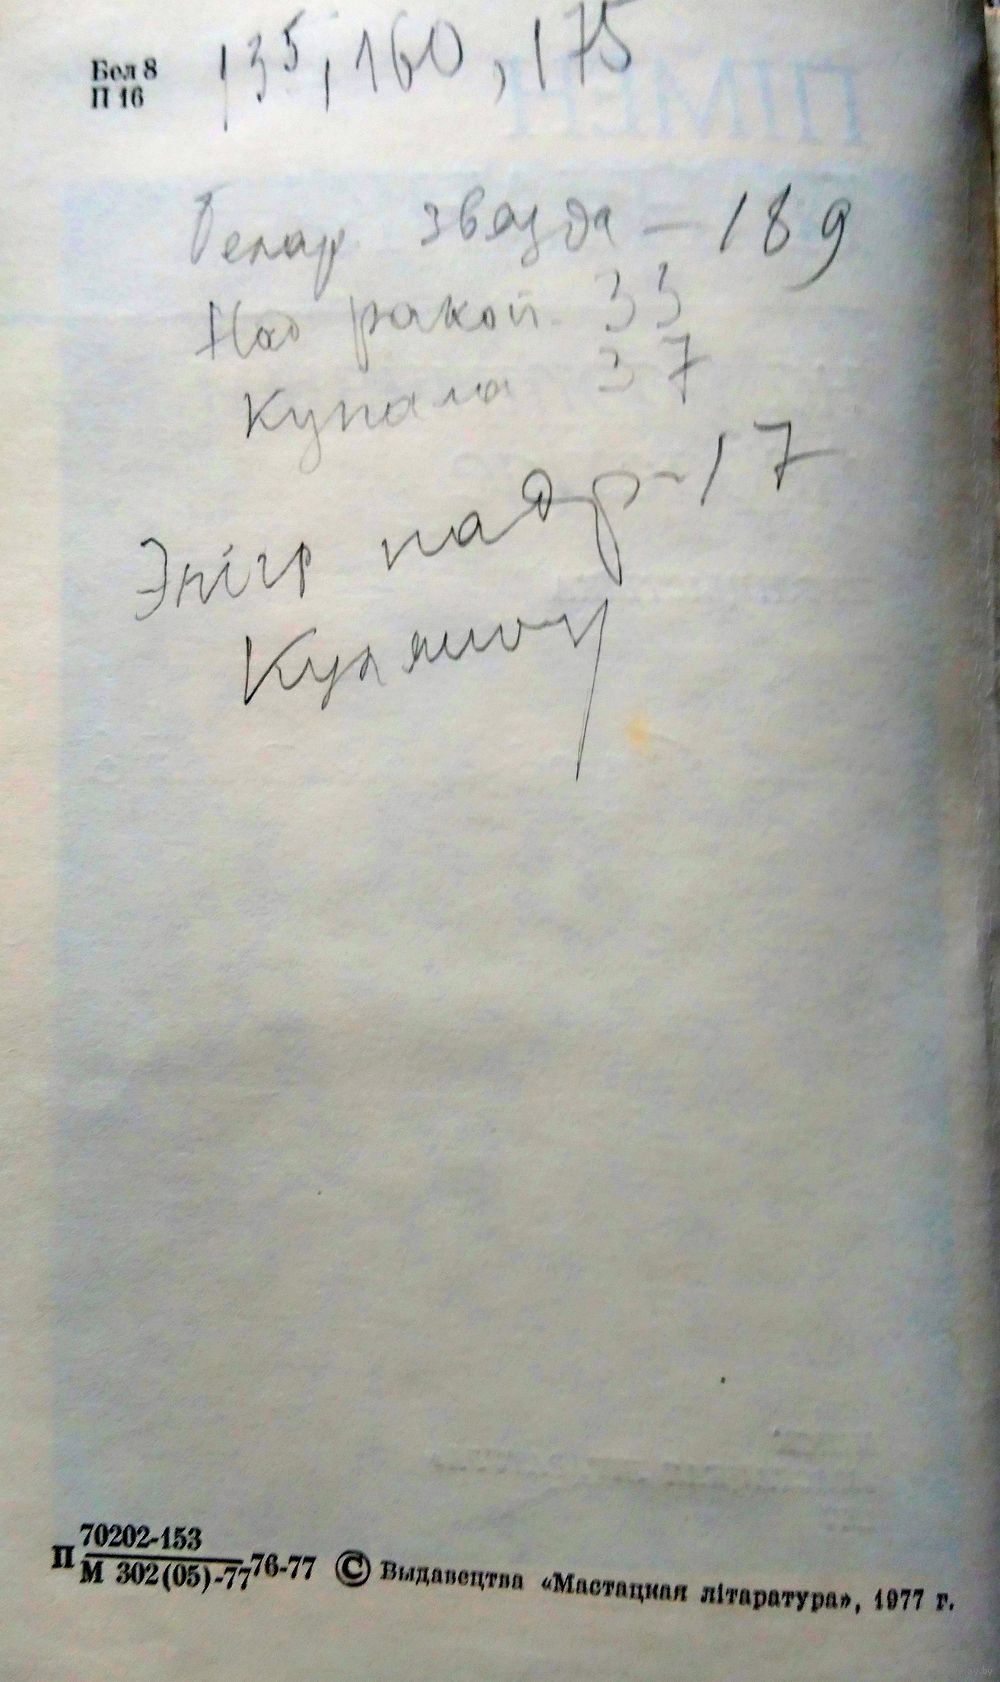 Бел 8
П 16
135, 160, 175
Белар звязда — 189
Над ракой 33
Купала 37
Эпігр падр - 17
Куляшоў
70202-153
П 76-77
М 302(05)-77
© Выдавецтва «Мастацкая літаратура», 1977 г.